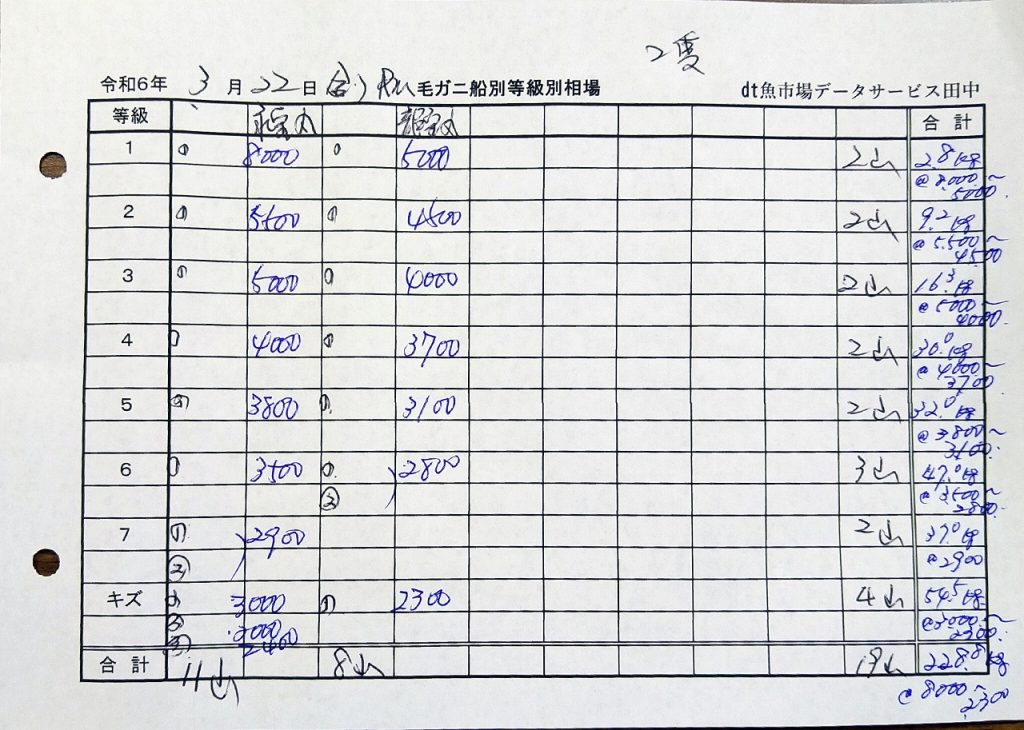 2隻
令和6年 3月22日(金) 毛ガニ船別等級別相場 dt魚市場データサービス田中
等級 合計
1 ① 8000 ① 5000 2山 2.8kg
@8000~5000
2 ① 5500 ① 4500 2山 9.2kg
@5.500~4500
3 ① 5000 ① 4000 2山 16.3kg
@5000~4000
4 ① 4000 ① 3700 2山 30.0kg
@4000~3700
5 ① 3800 ① 3100 2山 32.0kg
@3800~3100
6 ① 3500 ① 2800 3山 47.0kg
② @3500~2800
7 ① 2900 2山 37.0kg
② @2900
キズ ① 3000 ① 2300 4山 54.5kg
② 3000 @3000~2300
③ 2400
合計 11山 8山 19山 228.8kg
@8000~2300